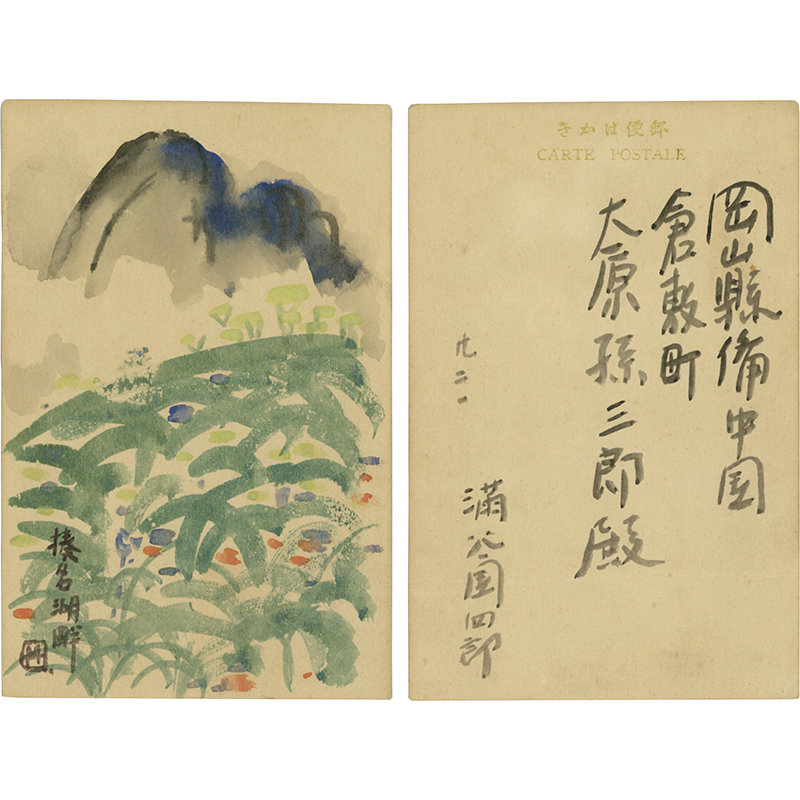 榛名湖畔
郵便はかき
CARTE POSTALE
岡山縣備中国
倉敷町
大原孫三郎殿
満谷国四郎